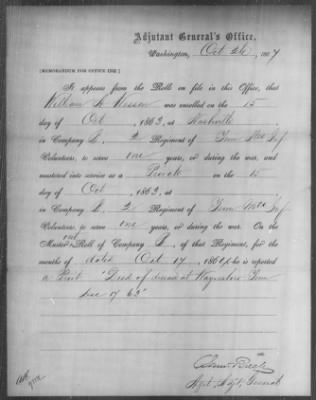 Adjutant General's Office,
Washington, Oct 26, 1867
[MEMORANDUM FOR OFFICE USE.]
It appears from the Rolls on file in this Office, that
William was enrolled on the 15
day of Oct, 1863, at Nashville
in Company 2 Regiment of Tenn Inf
Volunteers, to serve one years, or during the war, and
mustered into service as a Private on the 15
day of Oct, 1863, at
in Company 2 Regiment of Tenn Inf
Volunteers, to serve one years, or during the war. On the
Muster out Roll of Company of that Regiment, for the
months of dated Oct 17, 1864, he is reported
a Privt "Died of disease at Tenn
Dec of 63"
Asst. Adjt. General